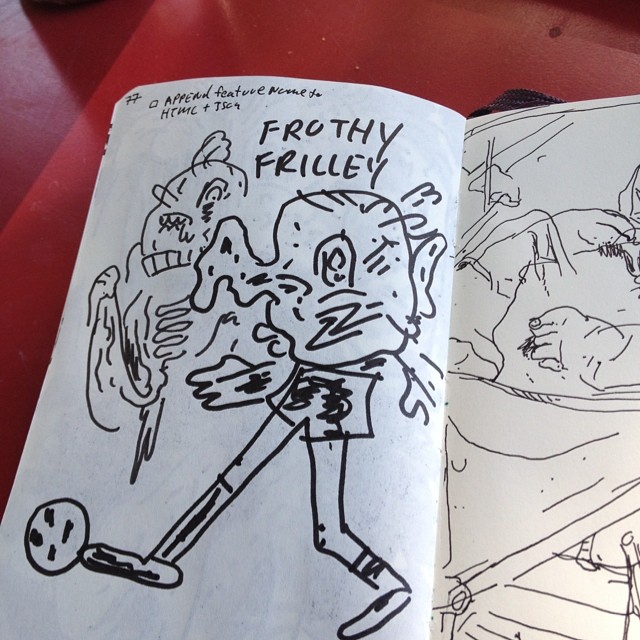 77 □ APPEND feature Name to
HTML + JSON
FROTHY
FRILLEY